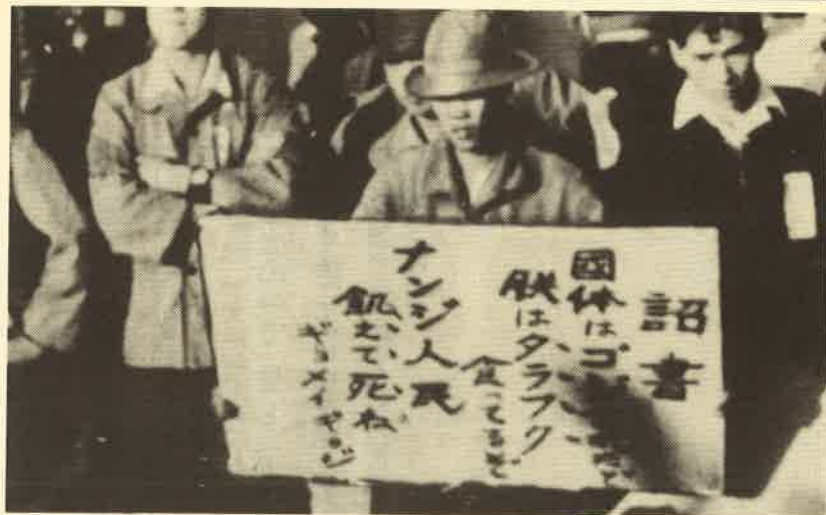 詔書
國体はゴ
朕はタラフク
食ってるぞ
ナンジ人民
飢えて死ね
ギョメイギョジ